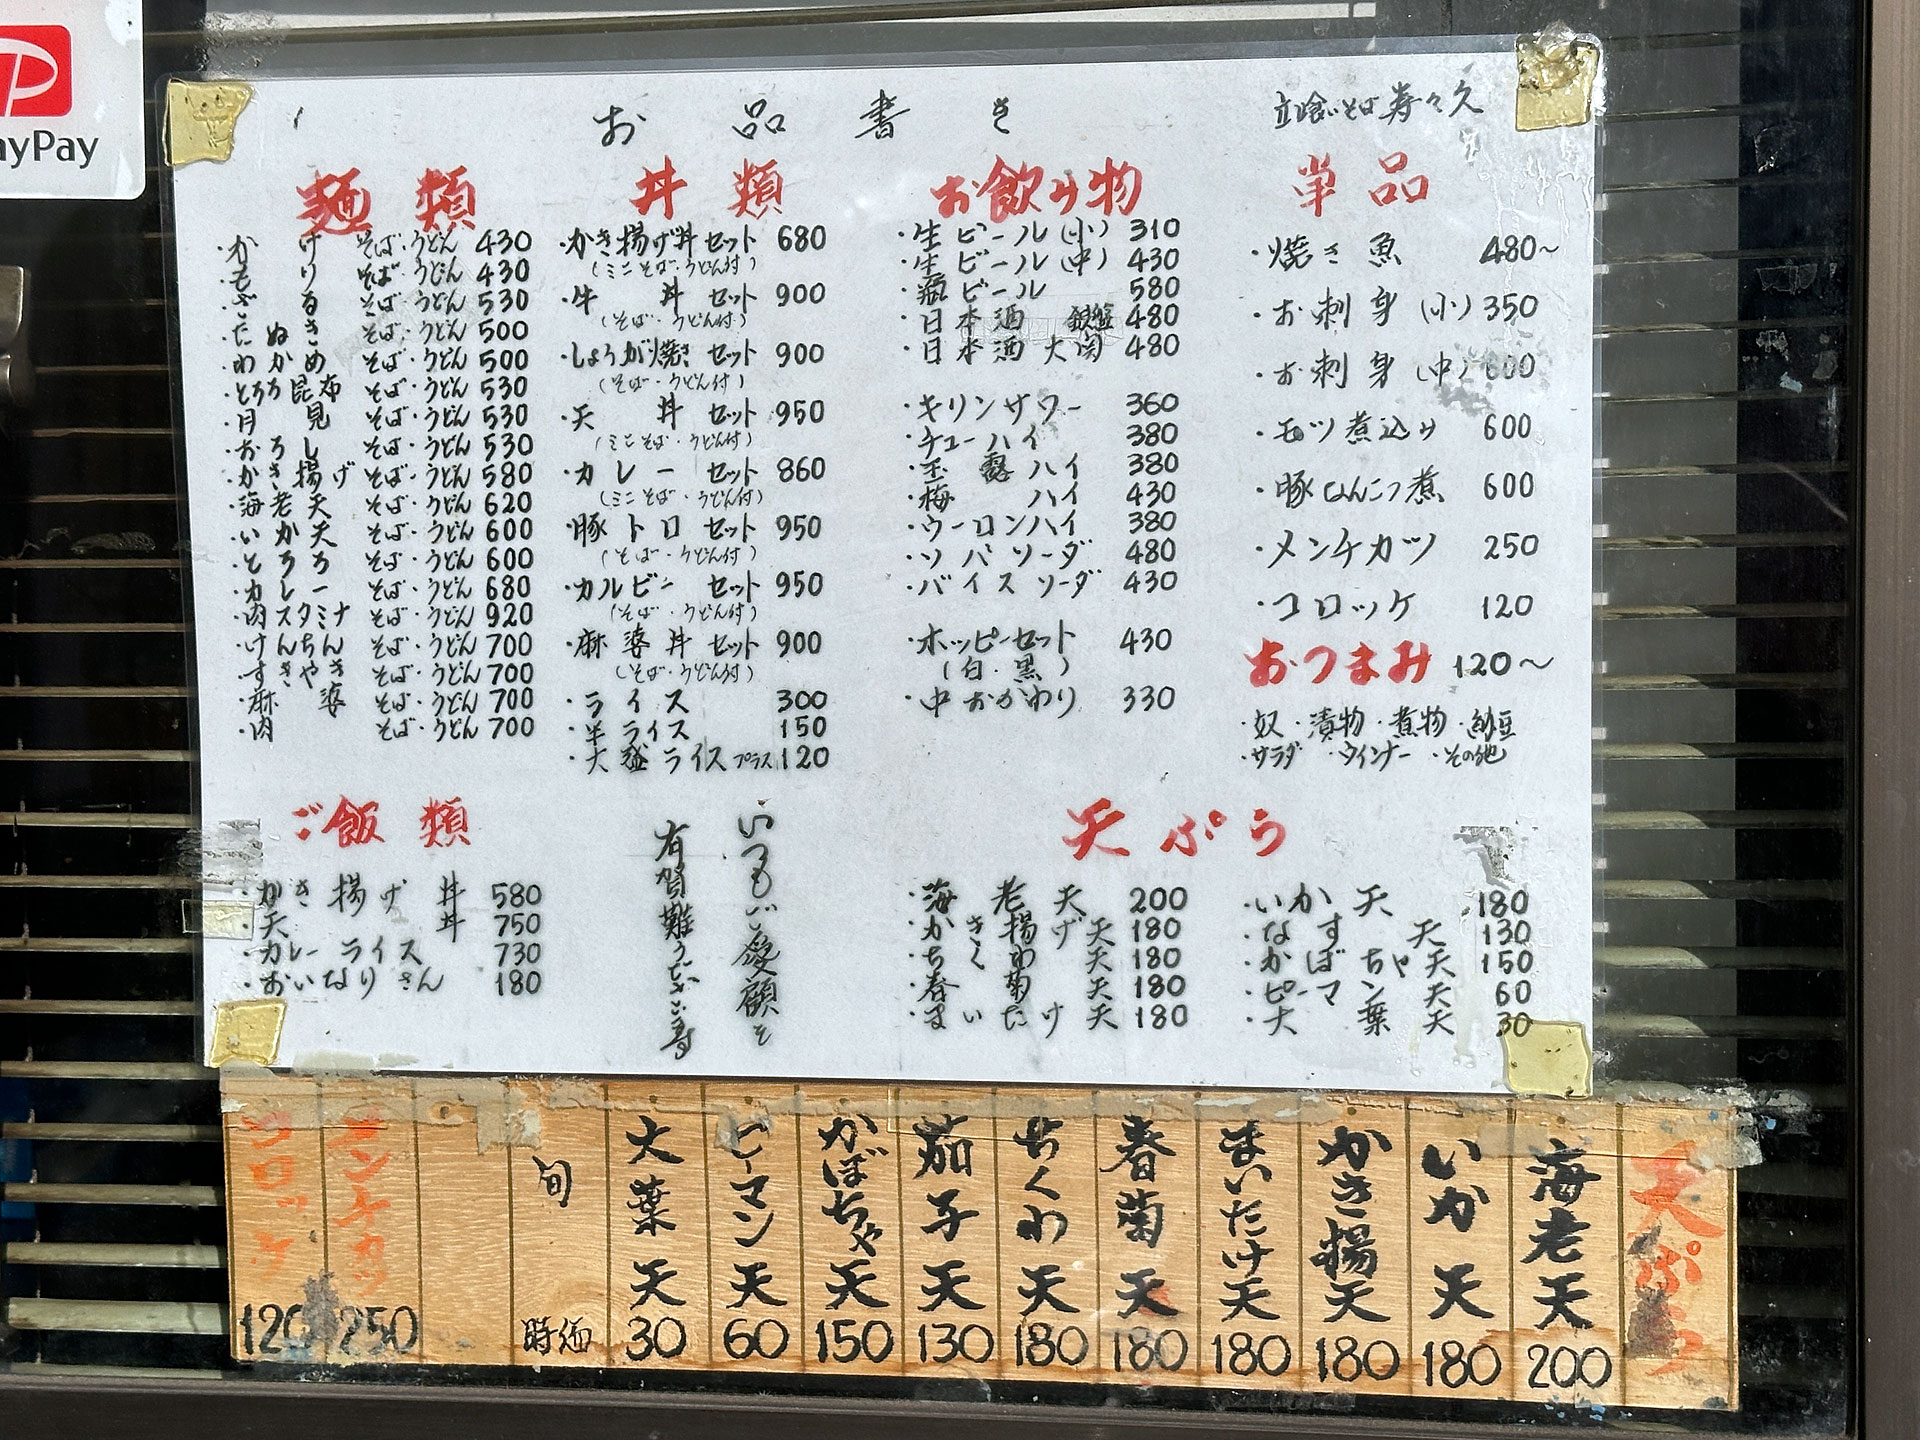 PayPay
お品書き
立喰いそば 寿々久
麺類
・かけ そば・うどん 430
・もり そば・うどん 430
・ざる そば・うどん 530
・たぬき そば・うどん 500
・わかめ そば・うどん 500
・とろろ昆布 そば・うどん 530
・月見 そば・うどん 530
・おろし そば・うどん 530
・かき揚げ そば・うどん 580
・海老天 そば・うどん 620
・いか天 そば・うどん 600
・とろろ そば・うどん 600
・カレー そば・うどん 680
・肉スタミナ そば・うどん 920
・けんちん そば・うどん 700
・すきやき そば・うどん 700
・麻婆 そば・うどん 700
・肉 そば・うどん 700
丼類
・かき揚げ丼セット 680
(ミニそば・うどん付)
・牛丼セット 900
(そば・うどん付)
・しょうが焼きセット 900
(そば・うどん付)
・天丼セット 950
(ミニそば・うどん付)
・カレーセット 860
(ミニそば・うどん付)
・豚トロセット 950
(そば・うどん付)
・カルビーセット 950
(そば・うどん付)
・麻婆丼セット 900
(そば・うどん付)
・ライス 300
・半ライス 150
・大盛ライス プラス120
お飲み物
・生ビール(小) 310
・生ビール(中) 430
・瓶ビール 580
・日本酒 銀盤 480
・日本酒 大関 480
・キリンサワー 360
・チューハイ 380
・玉露ハイ 380
・梅ハイ 430
・ウーロンハイ 380
・ソバソーダ 480
・バイスソーダ 430
・ホッピーセット 430
(白・黒)
・中おかわり 330
単品
・焼き魚 480〜
・お刺身(小) 350
・お刺身(中) 600
・モツ煮込み 600
・豚なんこつ煮 600
・メンチカツ 250
・コロッケ 120
おつまみ 120〜
・奴・漬物・煮物・納豆
・サラダ・ウインナー・その他
ご飯類
・かき揚げ丼 580
・天丼 750
・カレーライス 730
・おいなりさん 180
いつもご愛顧を
有賀難うございます
天ぷら
・海老天 200
・かき揚げ天 180
・ちくわ天 180
・春菊天 180
・まいたけ天 180
・いか天 180
・なす天 130
・かぼちゃ天 150
・ピーマン天 60
・大葉天 30
天ぷら
海老天 200
いか天 180
かき揚天 180
まいたけ天 180
春菊天 180
ちくわ天 180
茄子天 130
かぼちゃ天 150
ピーマン天 60
大葉天 30
旬 時価
メンチカツ 250
コロッケ 120